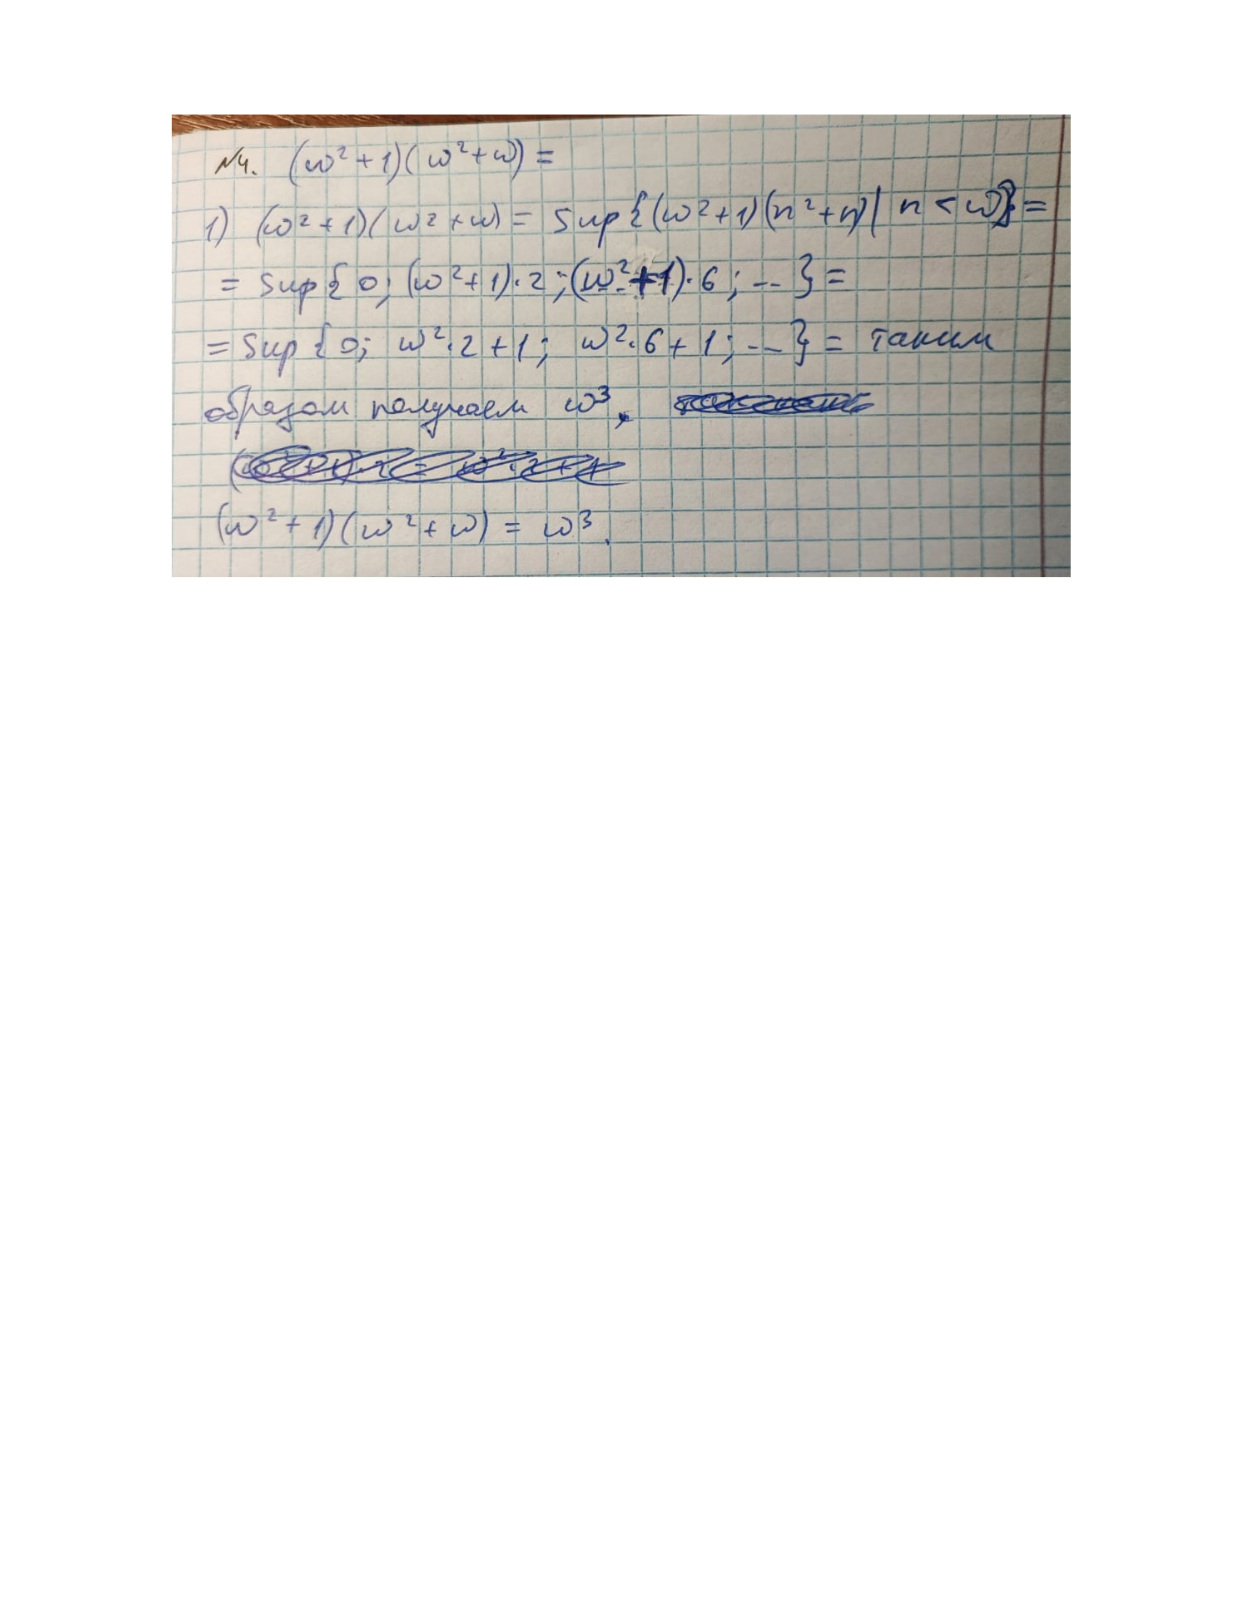 №4. (ω² + 1)(ω² + ω) =
1) (ω² + 1)(ω² + ω) = Sup{(ω² + 1)(n² + n) | n < ω} =
= Sup{0; (ω² + 1)·2; (ω² + 1)·6; ... } =
= Sup{0; ω²·2 + 1; ω²·6 + 1; ... } = таким
образом получаем ω³.
(ω² + 1)(ω² + ω) = ω³.